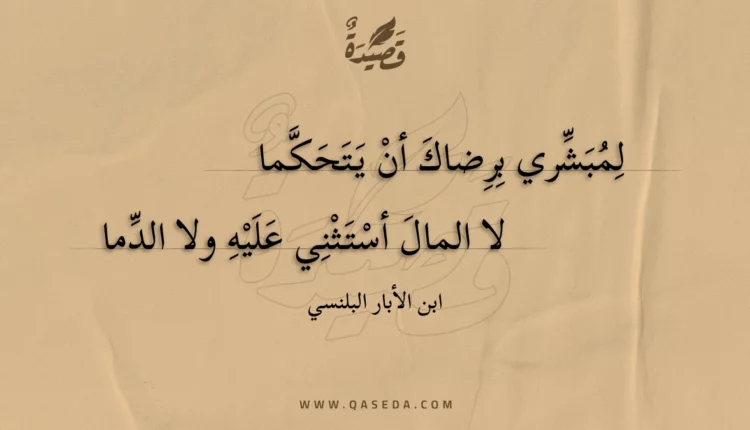 قَصِيدَةٌ
لِمُبَشِّري بِرِضاكَ أنْ يَتَحَكَّما
لا المالَ أسْتَثْنِي عَلَيْهِ ولا الدِّما
ابن الأبار البلنسي
WWW.QASEDA.COM